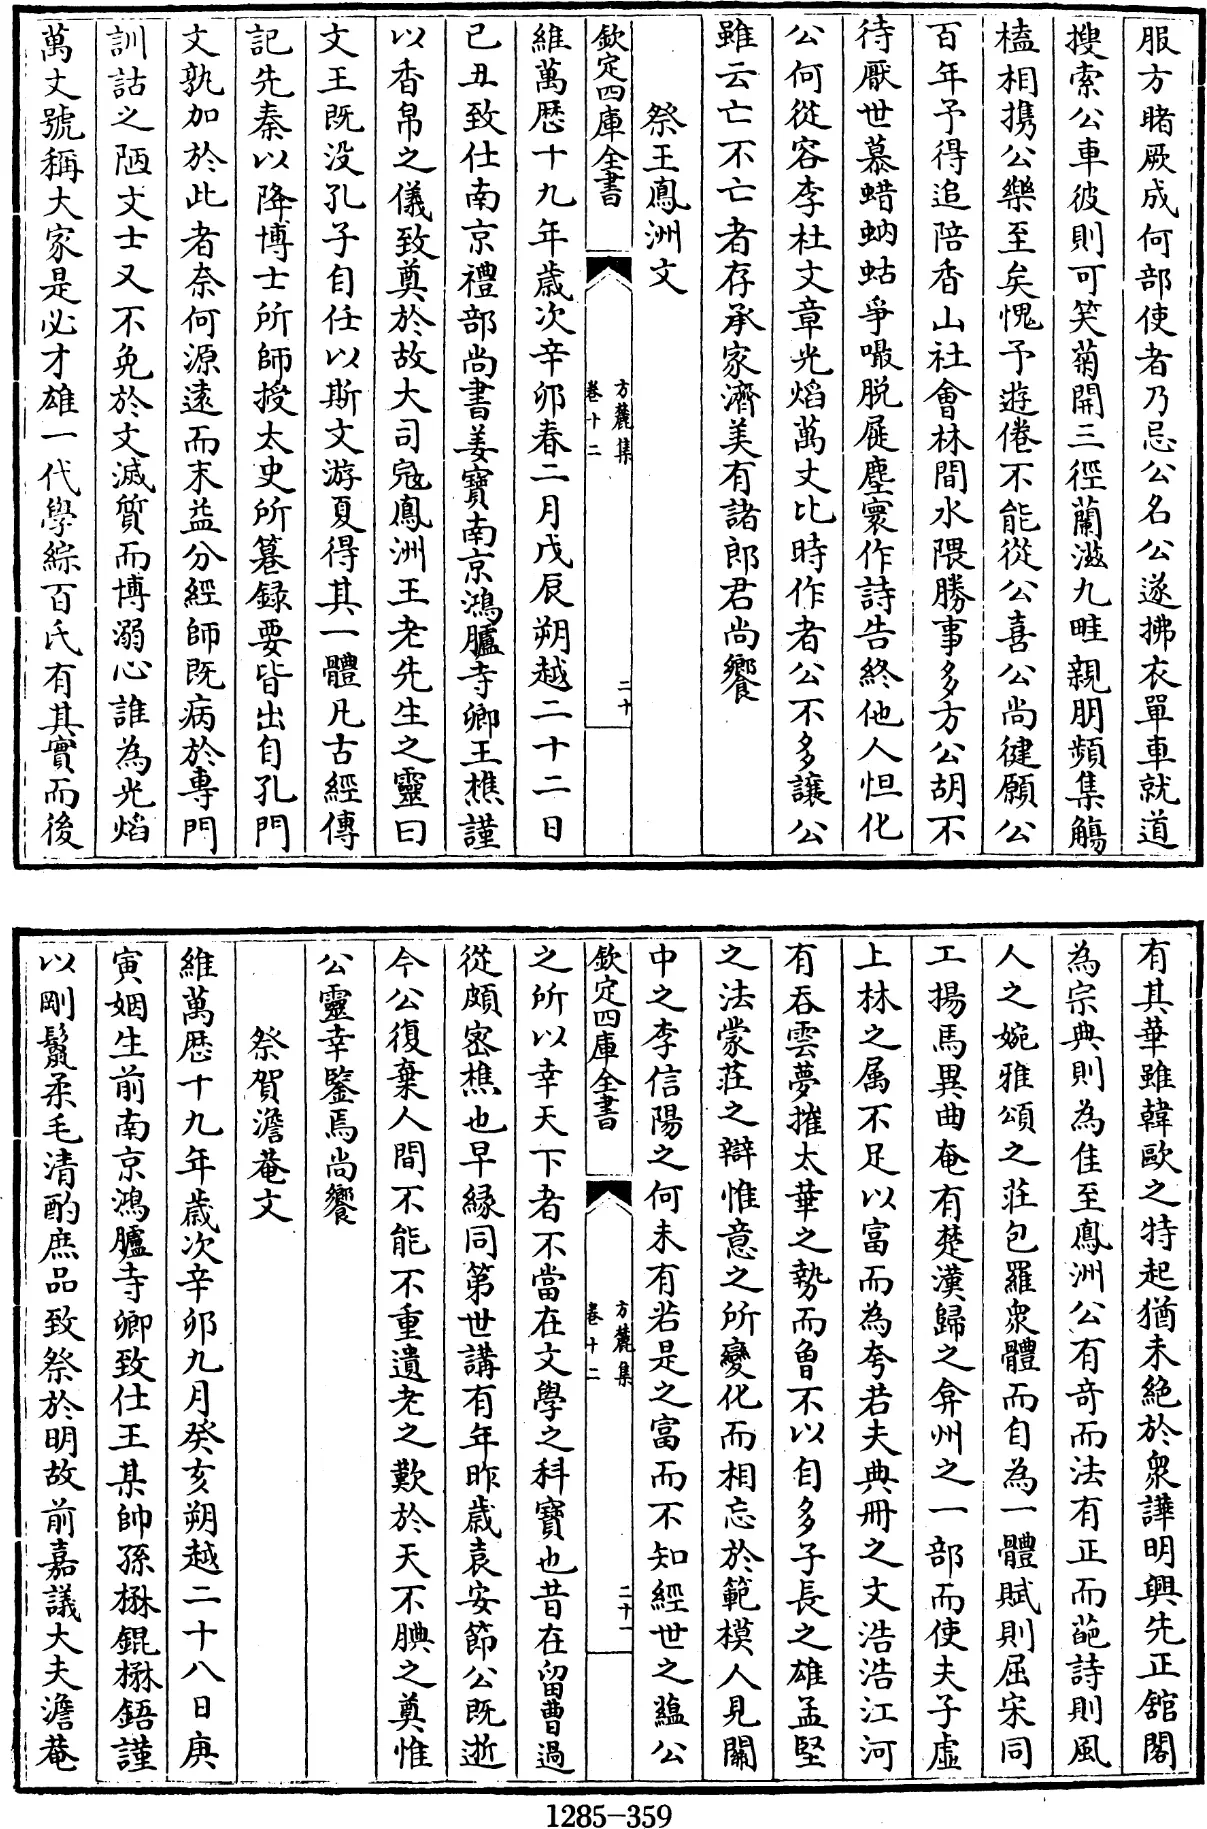 服方睹厥成何部使者乃忌公名公遂拂衣單車就道
搜索公車彼則可笑菊開三徑蘭滋九畦親朋頻集觴
榼相携公樂至矣愧予遊倦不能從公喜公尚健願公
百年予得追陪香山社會林間水隈勝事多方公胡不
待厭世慕蜡蚋蛄爭嘬脱屣塵寰作詩告終他人怛化
公何從容李杜文章光焰萬丈比時作者公不多讓公
雖云亡不亡者存承家濟美有諸郎君尚饗
祭王鳳洲文
欽定四庫全書
方麓集
卷十二
二十
維萬歴十九年歲次辛卯春二月戊辰朔越二十二日
己丑致仕南京禮部尚書姜寶南京鴻臚寺卿王樵謹
以香帛之儀致奠於故大司寇鳳洲王老先生之靈曰
文王既没孔子自任以斯文游夏得其一體凡古經傳
記先秦以降博士所師授太史所篹録要皆出自孔門
文孰加於此者奈何源遠而末益分經師既病於專門
訓詁之陋文士又不免於文滅質而博溺心誰為光焰
萬丈號稱大家是必才雄一代學綜百氏有其實而後
有其華雖韓歐之特起猶未絶於衆譁明興先正舘閣
為宗典則為佳至鳳洲公有奇而法有正而葩詩則風
人之婉雅頌之莊包羅衆體而自為一體賦則屈宋同
工揚馬異曲奄有楚漢歸之弇州之一部而使夫子虛
上林之属不足以富而為夸若夫典冊之文浩浩江河
有吞雲夢摧太華之勢而曾不以自多子長之雄孟堅
之法蒙莊之辯惟意之所變化而相忘於範模人見關
中之李信陽之何未有若是之富而不知經世之藴公
欽定四庫全書
方麓集
卷十二
二十一
之所以幸天下者不當在文學之科寶也昔在留曹過
從頗密樵也早縁同第世講有年昨歲袁安節公既逝
今公復棄人間不能不重遺老之歎於天不腆之奠惟
公靈幸鑒焉尚饗
祭賀澹菴文
維萬歴十九年歲次辛卯九月癸亥朔越二十八日庚
寅姻生前南京鴻臚寺卿致仕王某帥孫楙錕楙鋙謹
以剛鬛柔毛清酌庶品致祭於明故前嘉議大夫澹菴
1285-359